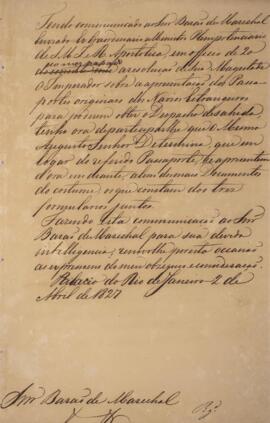 Tendo communicado ao Snr Barão de Mareschal
Enviado Extraordinario e Ministro Plenipotenciario
de S. M. I. e R. Apostolica, em officio de 20
do a resolução de Sua Magestade
o Imperador sobre a apresentação dos Passa-
portes originaes dos Navios Estrangeiros
para poderem obter o Despacho de sahida,
tenho ora de participar-lhe que o Mesmo
Augusto Senhor Determina, que em
logar do referido Passaporte, se apresentem
d'ora em diante, alem dos mais Documentos
do costume, os que constam dos tres
formularios juntos.
Fazendo esta communicação ao Snr
Barão de Mareschal para sua devida
intelligencia, por esta occasião
as expressoens do meu obsequio e consideração.
Palacio do Rio de Janeiro 2 de
Abril de 1827
Snr Barão de Mareschal